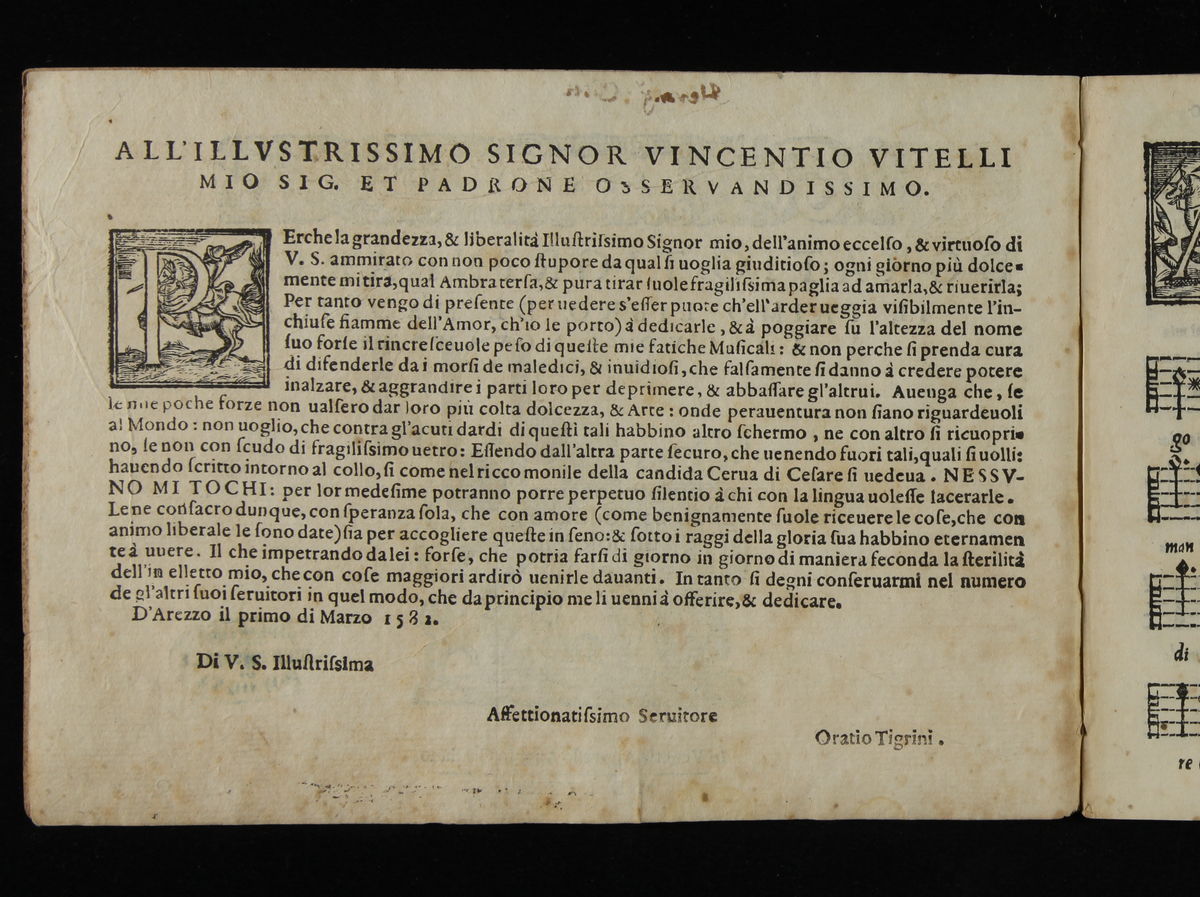 ALL'ILLVSTRISSIMO SIGNOR VINCENTIO VITELLI
MIO SIG. ET PADRONE OSSERVANDISSIMO.
PErche la grandezza, & liberalità Illuſtriſsimo Signor mio, dell'animo eccelſo, & virtuoſo di
V. S. ammirato con non poco ſtupore da qual ſi uoglia giuditioſo; ogni giorno più dolce-
mente mi tira, qual Ambra terſa, & pura tirar ſuole fragiliſsima paglia ad amarla, & riuerirla;
Per tanto vengo di preſente (per uedere s'eſſer puote ch'ell'arder ueggia viſibilmente l'in-
chiuſe fiamme dell'Amor, ch'io le porto) à dedicarle, & à poggiare ſu l'altezza del nome
ſuo forſe il rincreſceuole peſo di queſte mie fatiche Muſicali: & non perche ſi prenda cura
di difenderle da i morſi de maledici, & inuidioſi, che falſamente ſi danno à credere potere
inalzare, & aggrandire i parti loro per deprimere, & abbaſſare gl'altrui. Auenga che, ſe
le mie poche forze non ualſero dar loro più colta dolcezza, & Arte: onde perauentura non ſiano riguardeuoli
al Mondo: non uoglio, che contra gl'acuti dardi di queſti tali habbino altro ſchermo, ne con altro ſi ricuopri-
no, ſe non con ſcudo di fragiliſsimo uetro: Eſſendo dall'altra parte ſecuro, che uenendo fuori tali, quali ſi uolli:
hauendo ſcritto intorno al collo, ſi come nel ricco monile della candida Cerua di Ceſare ſi uedeua. NESSV-
NO MI TOCHI: per lor medeſime potranno porre perpetuo ſilentio à chi con la lingua uoleſſe lacerarle.
Le ne conſacro dunque, con ſperanza ſola, che con amore (come benignamente ſuole riceuere le coſe, che con
animo liberale le ſono date) ſia per accogliere queſte in ſeno: & ſotto i raggi della gloria ſua habbino eternamen
te à uiuere. Il che impetrando da lei: forſe, che potria farſi di giorno in giorno di maniera feconda la ſterilità
dell'in elletto mio, che con coſe maggiori ardirò uenirle dauanti. In tanto ſi degni conſeruarmi nel numero
de gl'altri ſuoi ſeruitori in quel modo, che da principio me li uenni à offerire, & dedicare.
D'Arezzo il primo di Marzo 1582.
Di V. S. Illuſtriſsima
Affettionatiſsimo Seruitore
Oratio Tigrini.
go
man
di
re